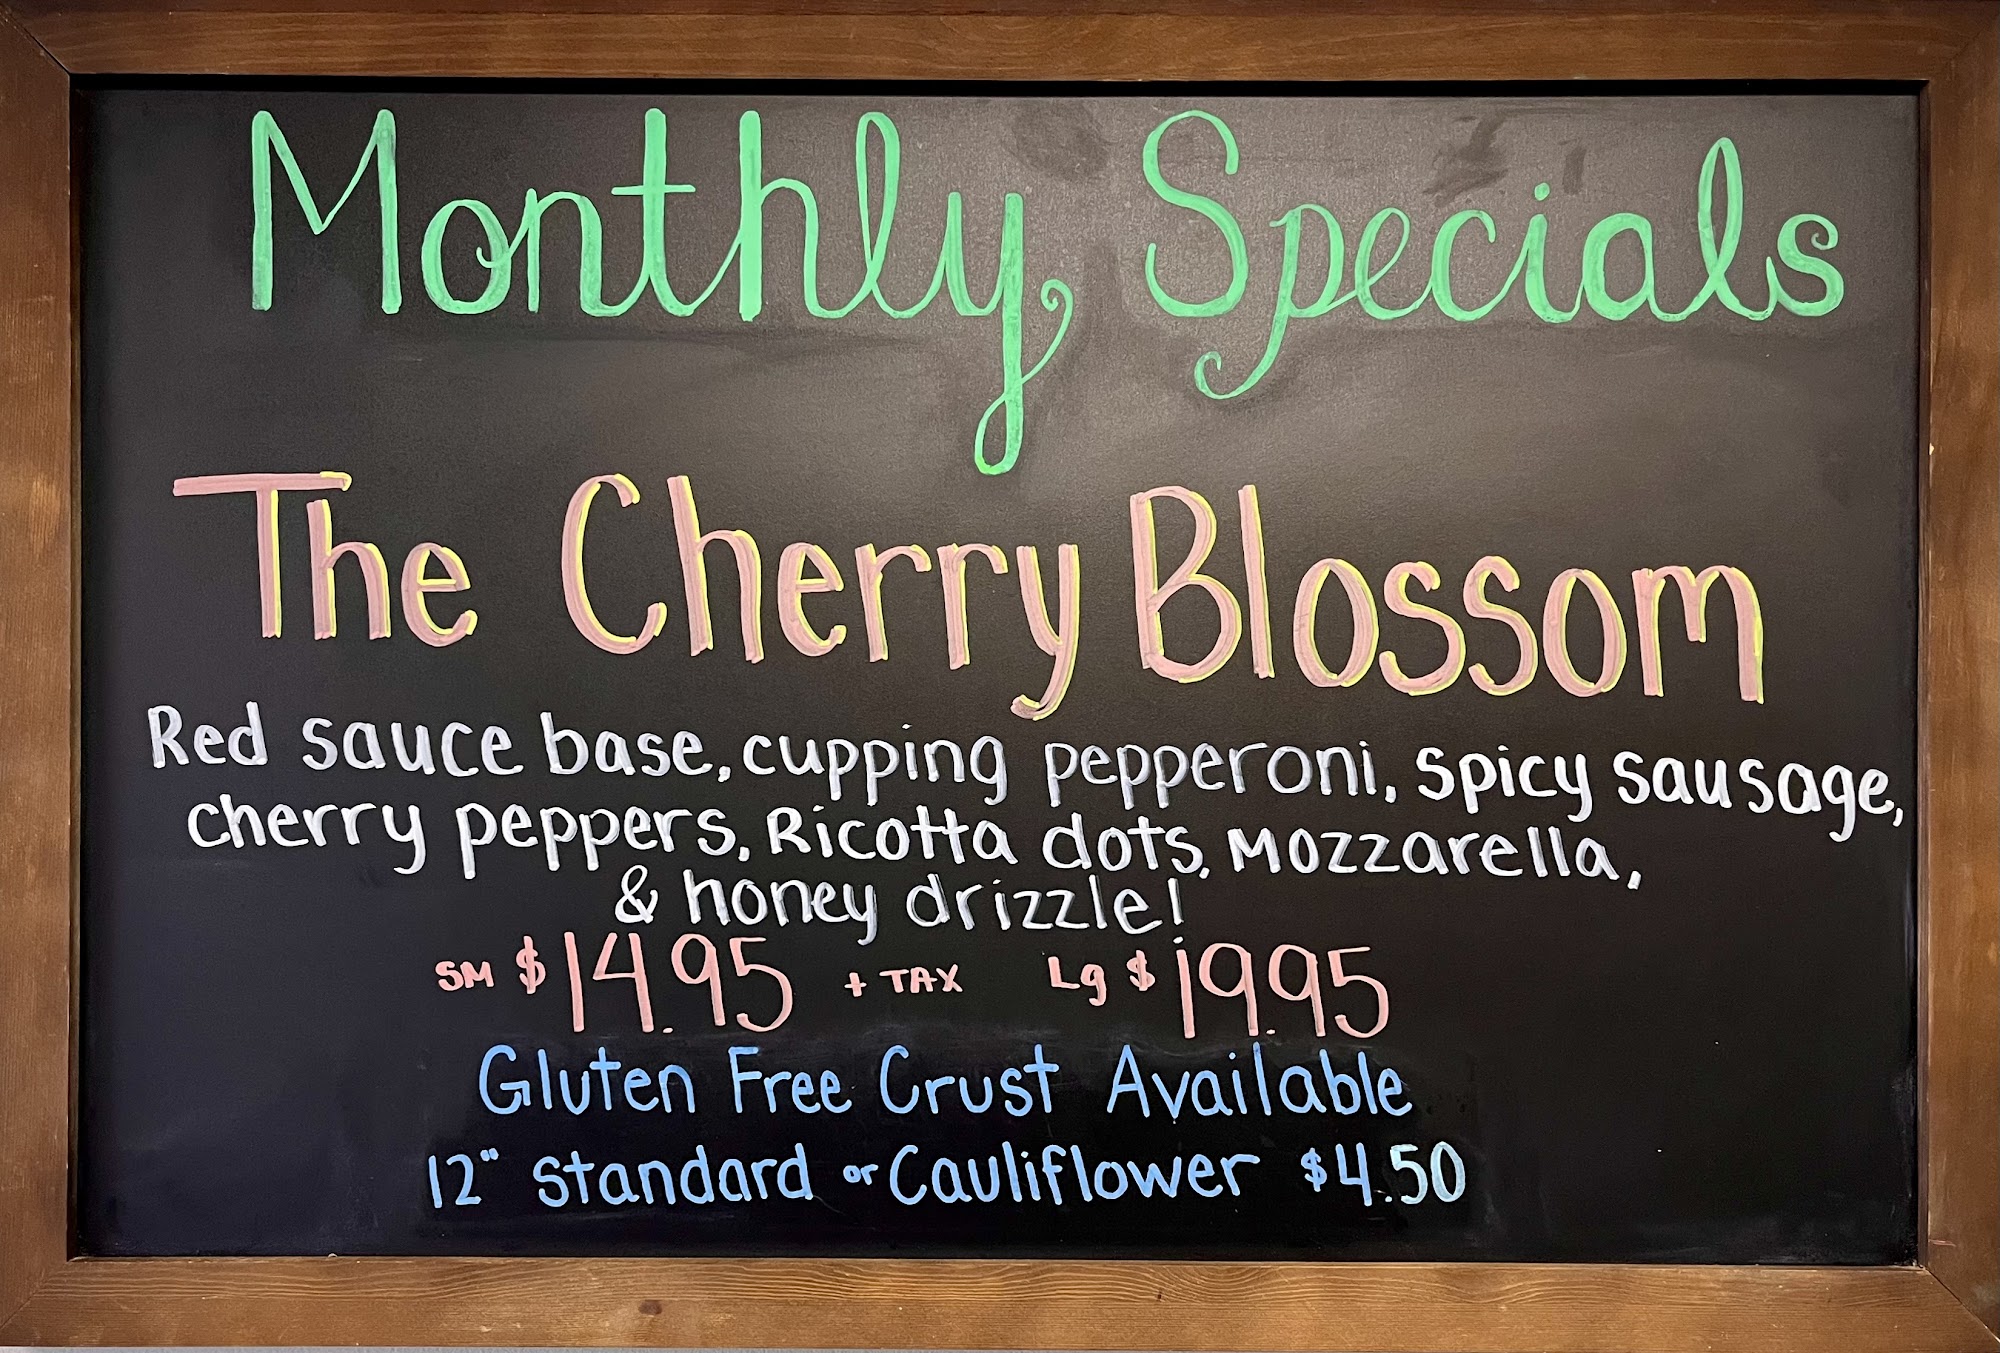 Monthly Specials
The Cherry Blossom
Red sauce base, cupping pepperoni, spicy sausage,
cherry peppers, Ricotta dots, Mozzarella,
& honey drizzle!
SM $14.95 + TAX Lg $19.95
Gluten Free Crust Available
12" standard or Cauliflower $4.50